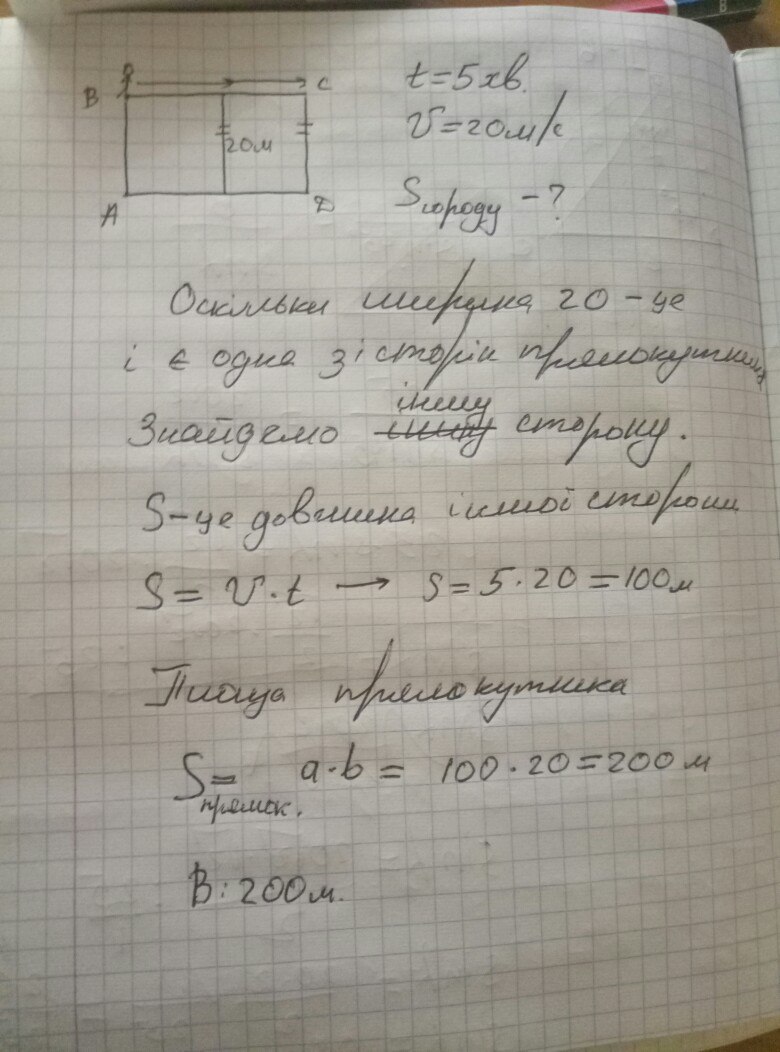 B C
20м
A D
t=5хв.
V=20м/с
Sгороду -?
Оскільки ширина 20 - це
і є одна зі сторін прямокутника
іншу
Знайдемо сторону.
S-це довжина іншої сторони
S = V·t → S = 5·20 = 100м
Площа прямокутника
S = a·b = 100·20=200м
прямок.
В: 200м.